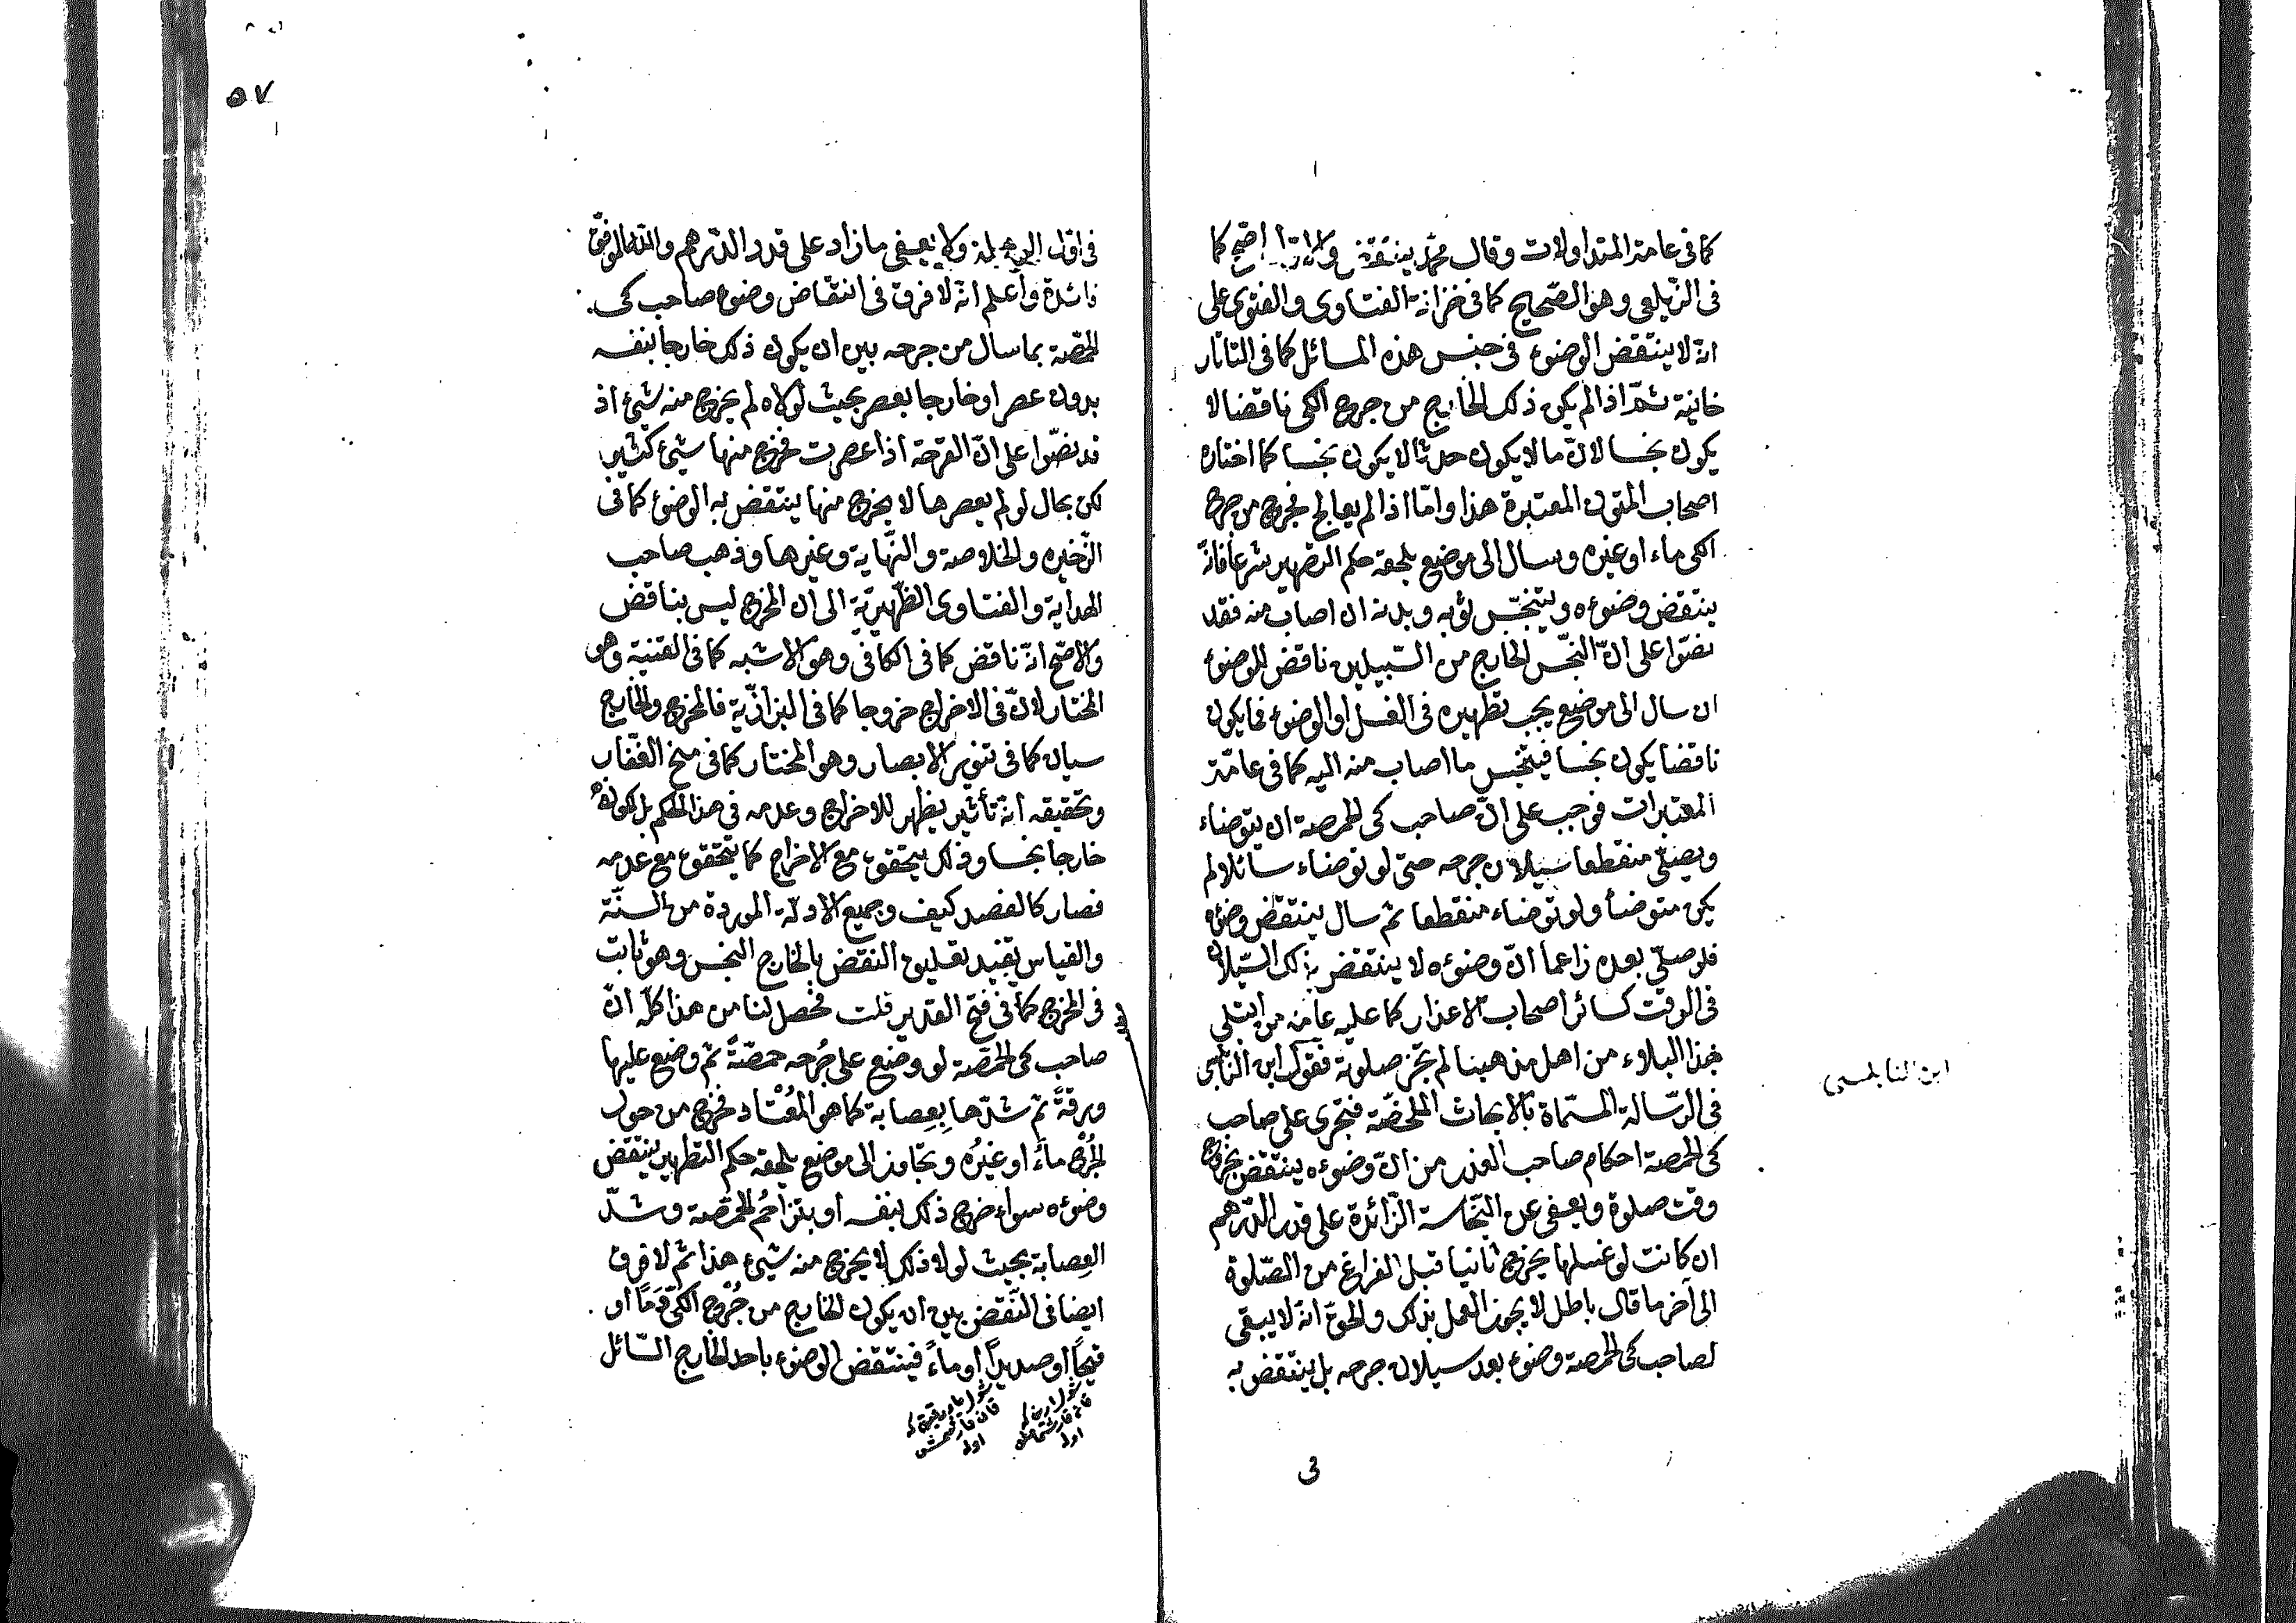 كما فى عامة المتداولات وقال محمد ينتقض والاول اصح كما
فى الزيلعى وهو الصحيح كما فى خزانة الفتاوى والفتوى على
انه لا ينتقض الوضوء فى جنس هذه المسائل كما فى التاتار
خانية ثمّ اذا لم يكن ذلك الخارج من جرح الكى ناقضا لا
يكون نجسا لانّ ما لا يكون حدثا لا يكون نجسا كما اختاره
اصحاب المتون المعتبرة هذا وامّا اذا لم يعالج فخرج من جرح
الكى ماء او غيره وسال الى موضع يلحقه حكم التطهير شرعا فانّه
ينتقض وضوءه ويتنجّس ثوبه وبدنه ان اصاب منه فقد
نصّوا على انّ النّجس الخارج من السّبيلين ناقض للوضوء
ان سال الى موضع يجب تطهيره فى الغسل او الوضوء فما يكون
ناقضا يكون نجسا فيتنجّس ما اصاب منه اليه كما فى عامّة
المعتبرات فوجب على انّ صاحب كى الحمصة ان يتوضاء
ويصلّى منقطعا سيلان جرحه حتّى لو توضاء سائلا لم
يكن متوضأ ولو توضاء منقطعا ثم سال ينتقض وضوءه
فلو صلّى بعده زاعما انّ وضوءه لا ينتقض بذلك السّيلان
فى الوقت كسائر اصحاب الاعذار كما عليه عامّة من ابتلى
بهذا البلاء من اهل مذهبنا لم تجز صلوته فقول ابن النّابلسى
ابن النابلسى
فى الرّسالة المسمّاة بالابحاث الملخصّة فتجرى على صاحب
كى الحمصة احكام صاحب العذر من انّ وضوءه ينتقض بخروج
وقت صلوة ويعفى عن النّجاسة الزّائدة على قدر الدّرهم
ان كانت لو غسلها يخرج ثانيا قبل الفراغ من الصّلوة
الى آخر ما قال باطل لا يجوز العمل بذلك والحقّ انّه لا يبقى
لصاحب كى الحمصة وضوء بعد سيلان جرحه بل ينتقض به
فى
٥٧
فى اوّل ولا يعفى ما زاد على قدر الدّرهم والله الموفّق
فائدة واعلم انّه لا فرق فى انتقاض وضوء صاحب كى
الحمّصة بما سال من جرحه بين ان يكون ذلك خارجا بنفسه
بدون عصر او خارجا بعصر بحيث لولاه لم يخرج منه شئ اذ
قد نصّوا على انّ القرحة اذا عصرت فخرج منها شئ كثير
لكن بحال لو لم يعصرها لا يخرج منها ينتقض به الوضوء كما فى
الذّخيره والخلاصة والنّهاية وغيرها وذهب صاحب
الهداية والفتاوى الظّهيريّة الى ان المخرج ليس بناقض
والاصّح انّه ناقض كما فى الكافى وهو الاشبه كما فى القنية وهو
المختار لانّ فى الاخراج خروجا كما فى البزازّية فالمخرج والخارج
سيان كما فى تنوير الابصار وهو المختار كما فى منح الغفّار
وتحقيقه انّه تأثير يظهر للاخراج وعدمه فى هذا الحكم بل لكونه
خارجا نجسا وذلك يتحقق مع الاخراج كما يتحقق مع عدمه
فصار كالفصد كيف وجميع الادلّة الموردة من السنّة
والقياس يفيد تعليق النقض بالخارج النجس وهو ثابت
فى المخرج كما فى فتح القدير قلت فحصل لنا من هذا كلّه انّ
صاحب كى الحمّصة لو وضع على جُرحه حمصّةً ثم وضع عليها
ورقةً ثم شدّها بِعِصابة كما هو المُعْتاد فخرج من حول
الجُرح ماءٌ او غيرُه وتجاوز الى موضع يلحقه حكم التطهير ينتقض
وضوءه سواء خرج ذلك بنفسه او بتزاحُم الحمّصة وشدّ
العِصابة بحيث لولا ذلك لا يخرج منه شئ هذا ثم لا فرق
ايضا فى النّقض بين ان يكون الخارج من جُرْح الكىّ دَمًا او
قيحًا او صديدًا او ماءً فينتقض الوضوء باحد الخارج السّائل